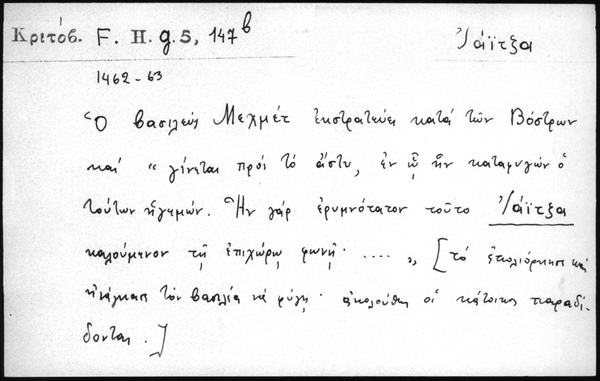 Κριτόβ. F. H. g. 5, 147b
Ἰάϊτξα
1462-63
Ὁ βασιλεὺς Μεχμέτ ἐκστρατεύει κατά τῶν Βόστρων
καί " γίνεται πρός τό ἄστυ, ἐν ᾧ ἦν καταφυγών ὁ
τούτων ἡγεμών. Ἦν γάρ ἐρυμνότατον τοῦτο Ἰάϊτξα
καλούμενον τῇ ἐπιχωρίῳ φωνῇ· .... „ [τό ἐπολιόρκησε καί
ἠνάγκασε τόν βασιλέα νά φύγῃ· ἀκολούθως οἱ κάτοικοι παραδί-
δονται.]